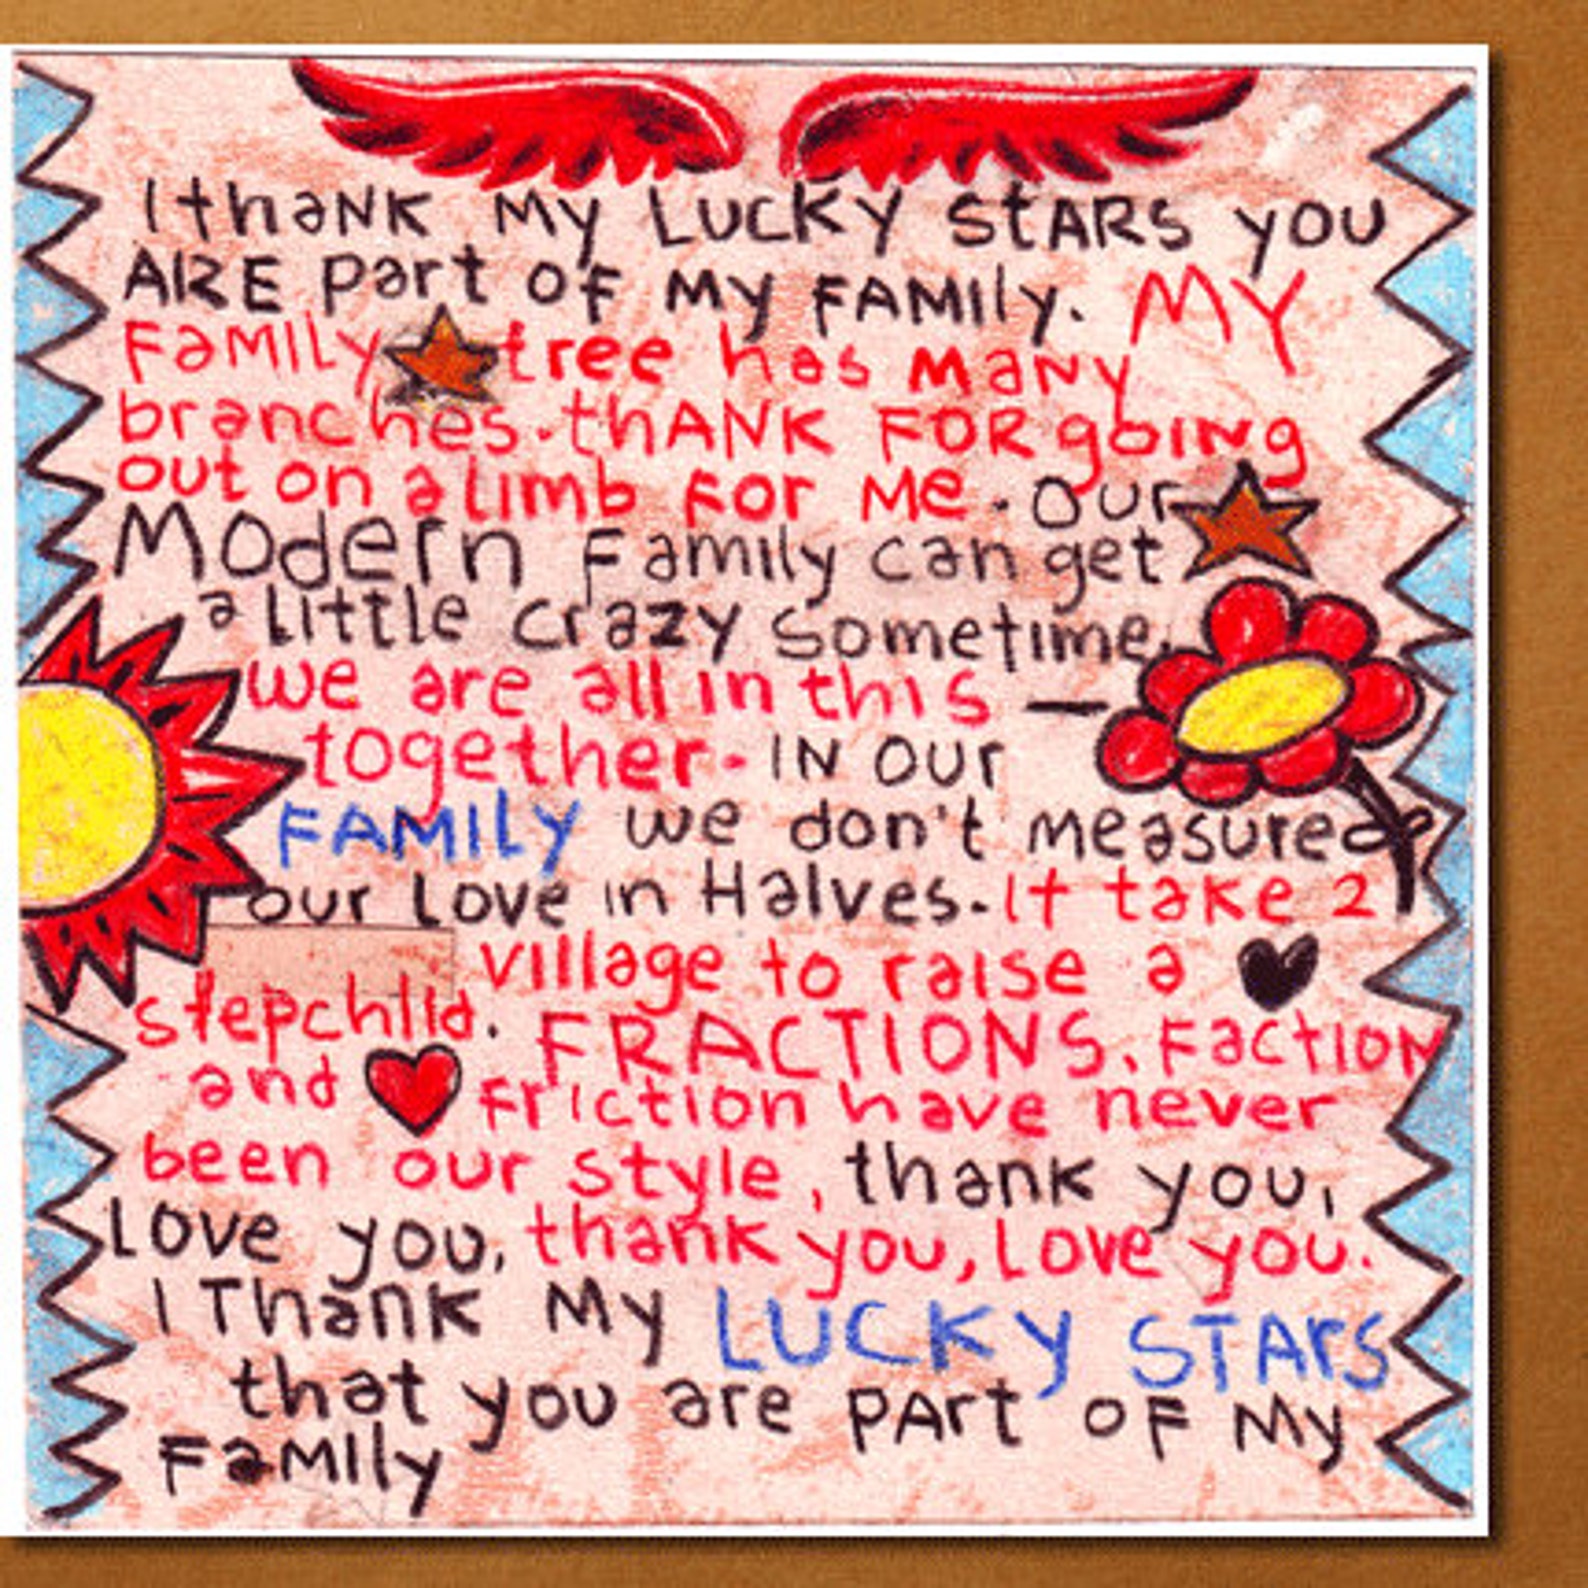 I thank My Lucky StARS you
ARE part of My FAMIly. MY
FaMILy tree has Many
branches. thANK FOR goING
out on a limb for Me. our
Modern Family can get
a little crazy Sometime.
we are all in this —
together. IN our
FAMIly we don't measured
our Love in Halves. It take 2
village to raise a
stepchlid. FRACTIONS, Faction
and friction have never
been our style, thank you,
Love you, thank you, Love you.
I Thank My LUCKy STArS
that you are PArt OF My
FaMIly